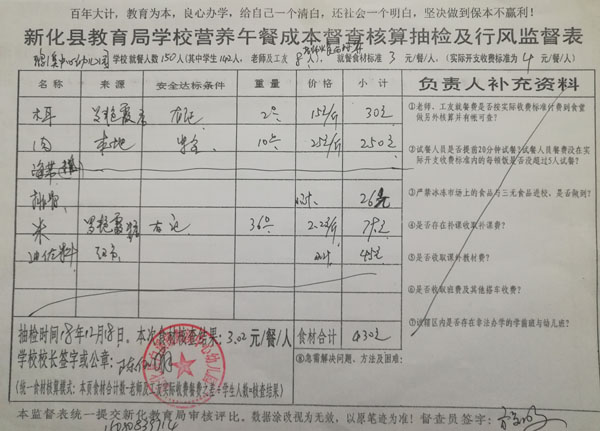 百年大计，教育为本，良心办学，给自己一个清白，还社会一个明白，坚决做到保本不赢利！
新化县教育局学校营养午餐成本督查核算抽检及行风监督表
学校就餐人数150人(其中学生142人，老师及工友8人)，就餐食材标准3元/餐/人，(实际开支收费标准为4元/餐/人)
名称 来源 安全达标条件 重量 价格 小计 负责人补充资料
木耳 2斤 15元/斤 30元
肉 本地 安全 10斤 25元/斤 250元
海带
排骨 26元
米 36斤 2.2元/斤 79元
油佐料 45元
①老师、工友就餐费是否按实际收费标准付到食堂做另外核算并有帐可查？
②试餐人员是否提前20分钟试餐？试餐人员餐费没在实际开支收费标准内的每顿饭是否没超过5人试餐？
③严禁冰冻市场上的食品与三无食品进校，是否做到？
④是否存在补课收取补课费？
⑤是否收取课外教材费？
⑥是否收取班费及其他搭车收费？
⑦该辖区内是否存在非法办学的学前班与幼儿班？
抽检时间18年12月18日。本次食材核查结果：3.02元/餐/人 食材合计 430元
学校校长签字或公章：
⑧急需解决问题、方法及困难：
(统一食材核算模式：本页食材合计数-老师及工友实际收费餐费之差÷学生人数=核查结果)
本监督表统一提交新化教育局审核评比。数据涂改视为无效，以原笔迹为准！督查员签字：